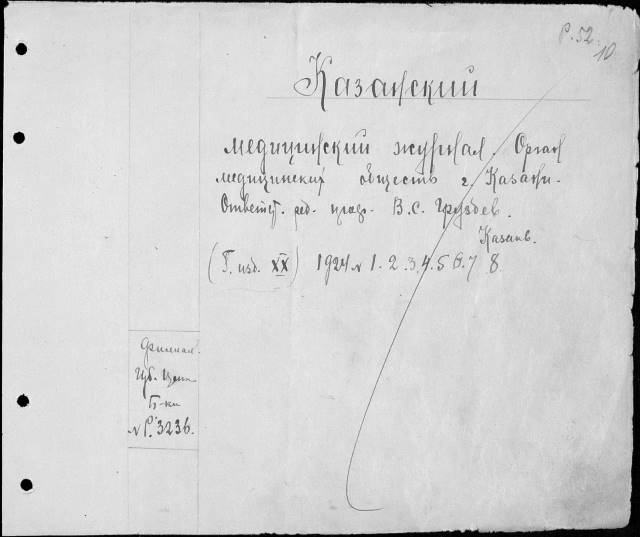 Р. 52.
10
Казанский
медицинский журнал. Орган
медицинских обществ г. Казани.
Ответст. ред. проф. В.С. Груздев.
Казань.
(Г. изд. XX) 1924 № 1. 2. 3. 4. 5 6. 7 8.
Филиал.
Губ. Цент.
Б-ки
№ Р. 3236.